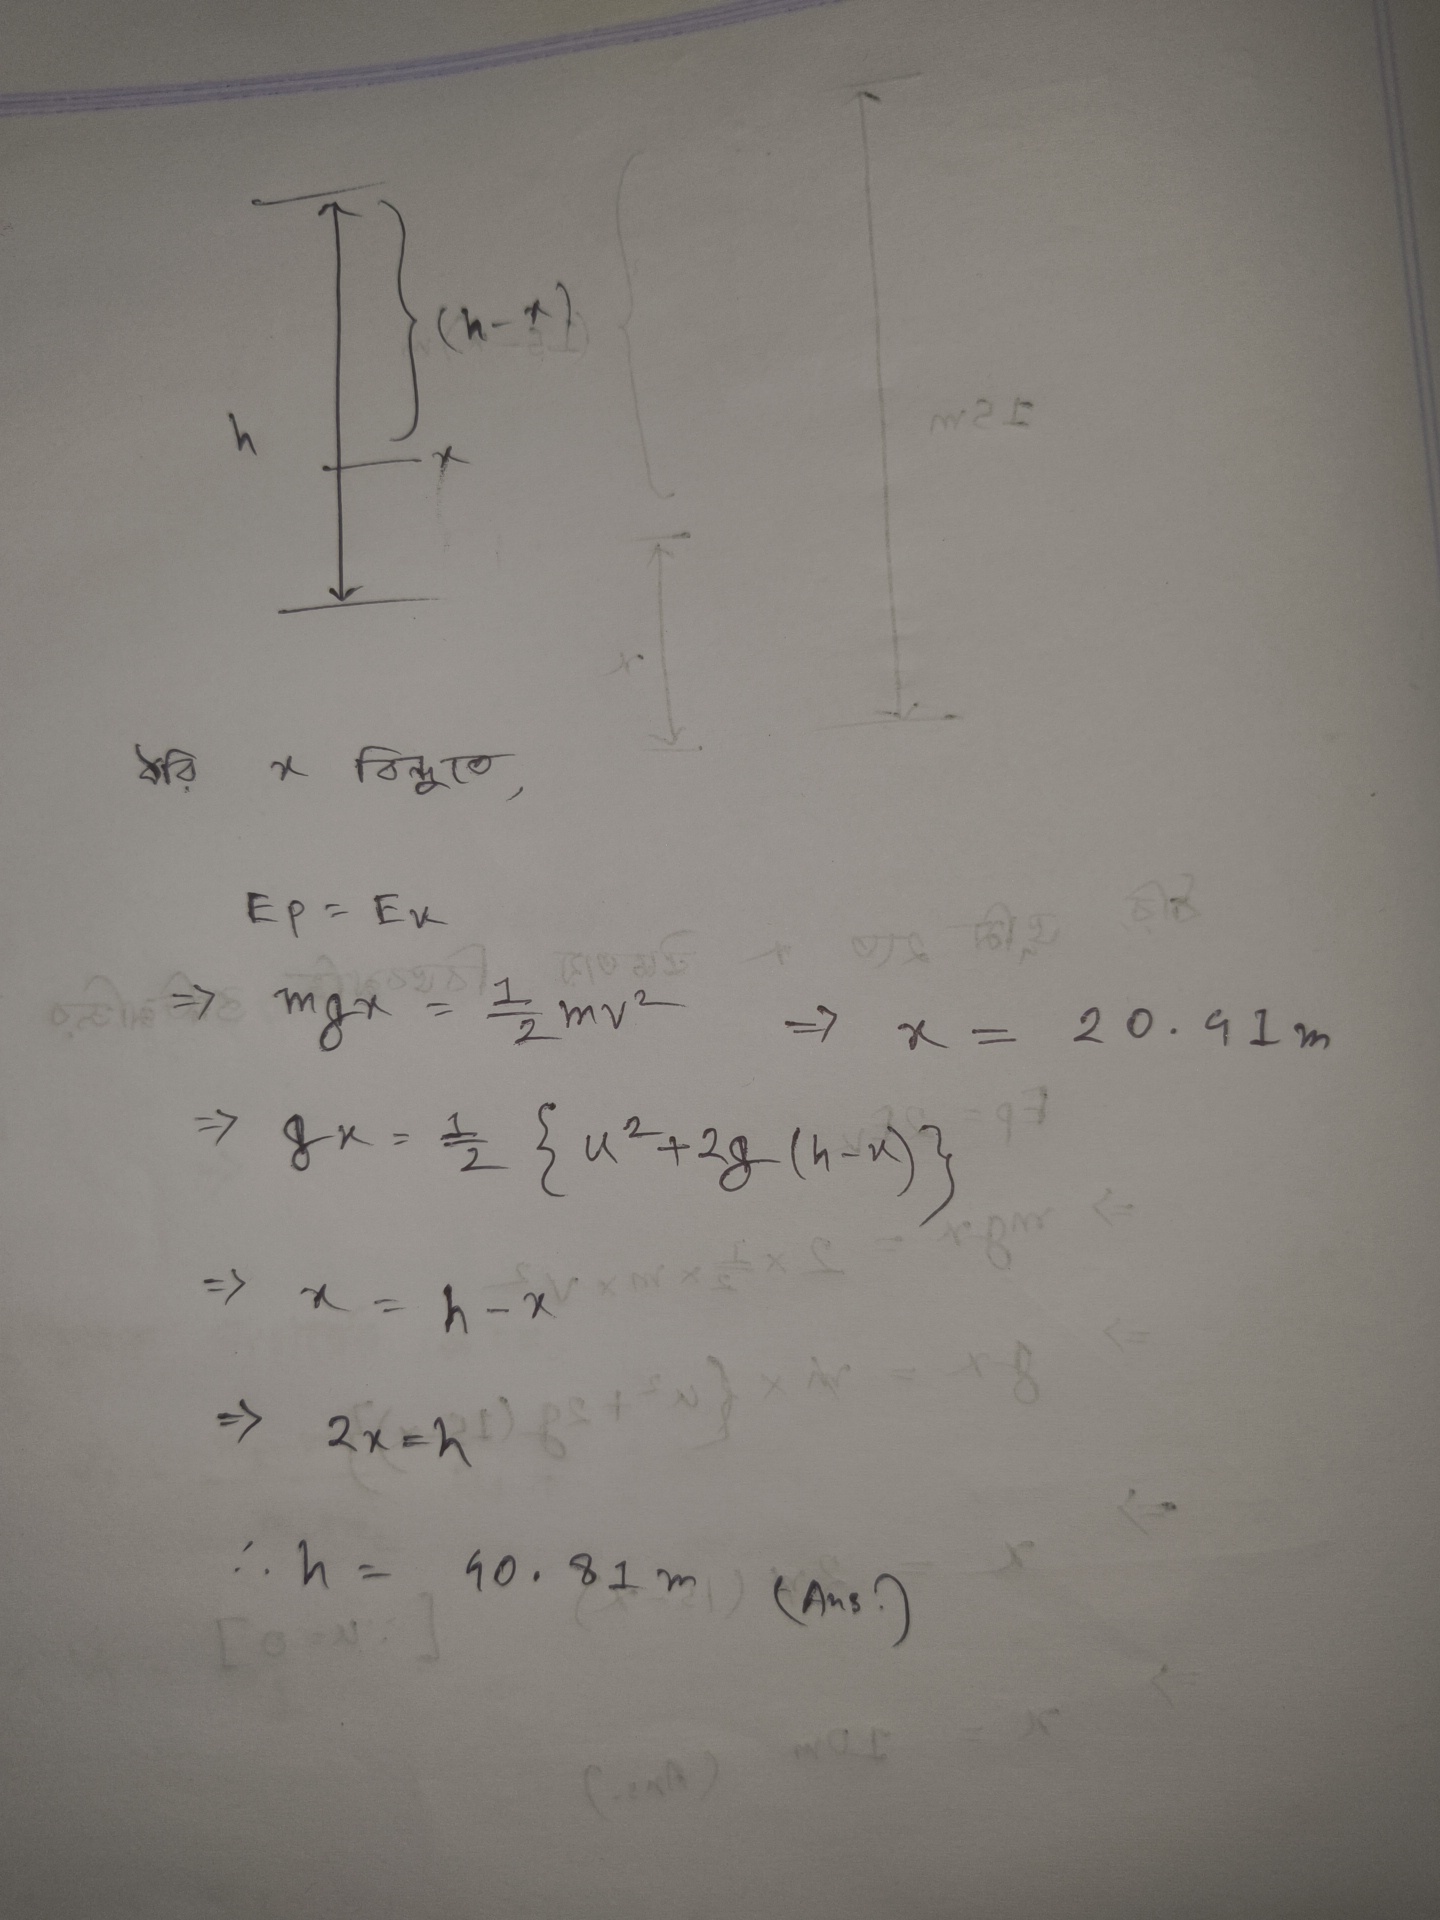 (h-x)
h
x
ধরি x বিন্দুতে,
Ep = Ek
=> mgx = 1/2 mv² => x = 20.41m
=> gx = 1/2 {u²+2g(h-x)}
=> x = h-x
=> 2x=h
∴ h = 40.81m (Ans:)